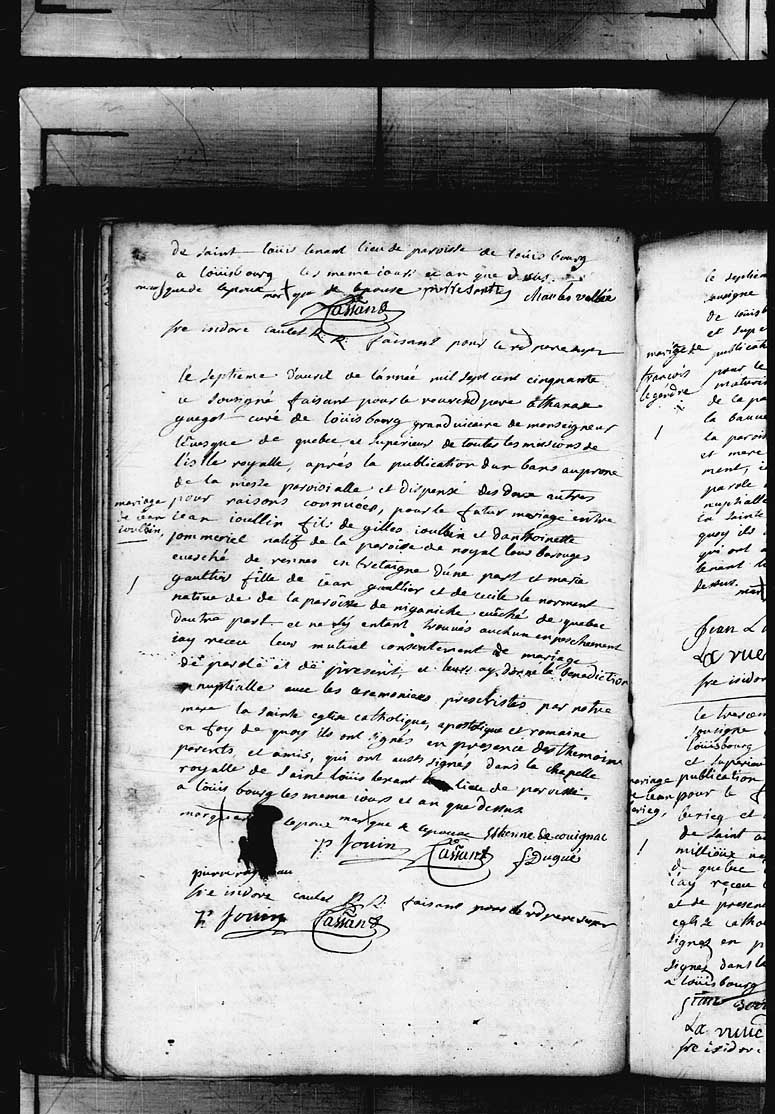 de saint loüis tenant lieu de paroisse de loüisbourg
a loüisbourg les meme jours et an que dessus
marque de lepoux marque de lepouse pierre Santes charles vallée
Cassand
fre isidore caulet R. faisant pour le rd pere super
le septieme d'avril de l'année mil sept cent cinquante
ie sousigné faisant pour le reverend pere athanase
guegot curé de loüisbourg grand vicaire de monseigneur
l'évesque de quebec et superieur de toutes les missions de
l'isle royalle, aprés la publication d'un bans au prone
de la messe paroissialle et dispensé des deux autres
pour raisons connuées, pour le futur mariage entre
mariage
de jean
ioullin,
jean ioullin fils de gilles ioullin et d'anthoinette
jommeriel natif de la paroise de noyal sous barouges
evesché de rennes en bretaigne d'une part et marie
gaultier fille de jean gaultier et de cecile le norment
native de de la paroisse de niganiche evêché de quebec
d'autre part et ne s'y entant trouvés auchun enpeschement
j'ay receu leur mutuel consentement de mariage
de parole et de present et leurs ay donné la benediction
nuptialle avec les ceremonies prescrittes par notre
mere la sainte eglise catholique, apostolique et romaine
en foy de quoy ils ont signés en presence des themoins
parents, et amis, qui ont aussy signés dans la chapelle
royalle de saint loüis tenant lieu de paroisse.
a loüis bourg les meme jours et an que dessus
marque de lepoux marque de lepouse Etienne de couignac
p. Jouin Cassand f. Dugué
pierre
fre isidore caulet faisant pour le rd pere super
p. Jouin Cassand
le septieme
sousigne
de louisb
et supe
mariage de
françois
legendre
publicat
pour le
maturin
de la pa
la
la paroi
et mere
ment, i
parole
nuptialle
la sainte
quoy ils
qui ont a
tenant l
dessus. mar
Jean L
La rue
fre isidor
le
sousigne
loüisbourg
et superieu
mariage
de jean
publication
pour le f
et
de saint
millioux na
de quebec
j'ay reçeu l
et de presen
eglise catho
signés en p
signés dans la
a loüisbourg
La rue
fre isidore